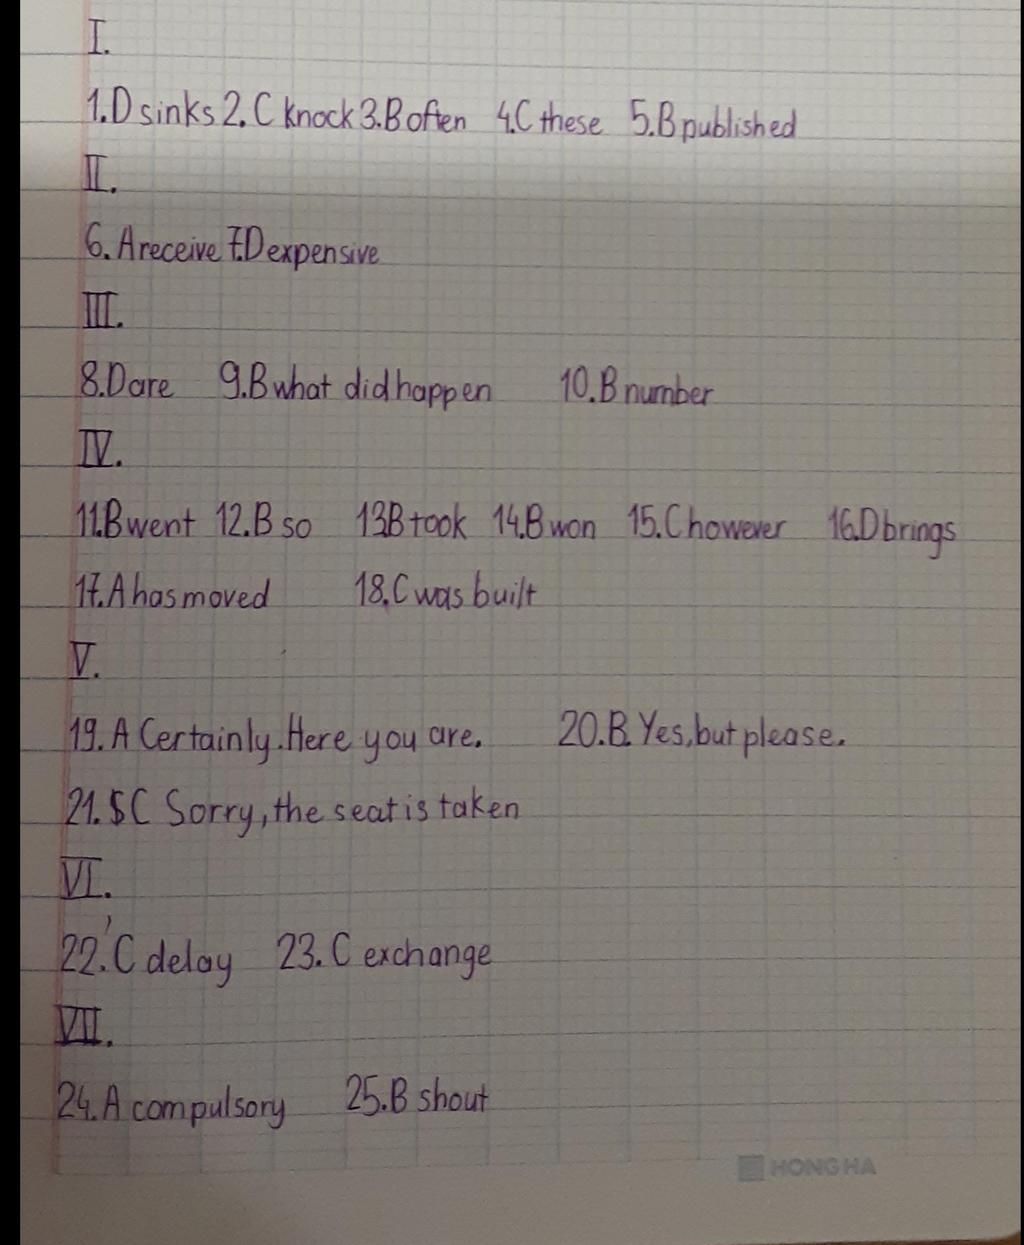 I.
1.D sinks 2. C knock 3.B often 4.C these 5.B published
II.
6. A receive 7.D expensive
III.
8.D are 9.B what did happen 10.B number
IV.
11.B went 12.B so 13B took 14.B won 15.C however 16.D brings
17.A has moved 18.C was built
V.
19. A Certainly. Here you are. 20.B. Yes, but please.
21. $C Sorry, the seat is taken
VI.
22. C delay 23. C exchange
VII.
24. A compulsory 25.B shout
HONG HA